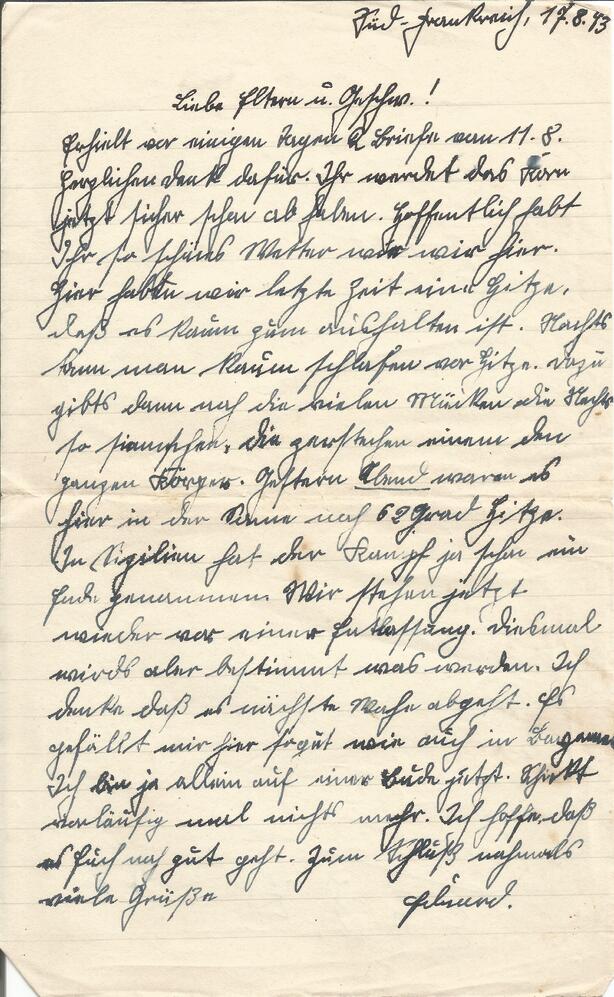 Süd-Frankreich, 17.8.43
Liebe Eltern u. Geschw.!
Erhielt vor einigen Tagen 2 Briefe vom 11.8.
Herzlichen Dank dafür. Ihr werdet das Korn
jetzt sicher schon ab haben. Hoffentlich habt
Ihr so schönes Wetter wie wir hier.
Hier haben wir letzte Zeit eine Hitze,
daß es kaum zum aushalten ist. Nachts
kann man kaum schlafen vor Hitze. Dazu
gibts dann noch die vielen Mücken die Nachts
so die zerstechen einem den
ganzen Körper. Gestern Abend waren es
hier in der Sonne noch 62 Grad Hitze.
In Sizilien hat der Kampf ja schon ein
Ende genommen. Wir stehen jetzt
wieder vor einer Entlassung. Diesmal
wirds aber bestimmt was werden. Ich
denke daß es nächste Woche abgeht. Es
gefällt mir hier so gut wie auch in
Ich bin ja allein auf einer Bude jetzt. Schickt
vorläufig mal nichts mehr. Ich hoffe, daß
es Euch noch gut geht. Zum Schluß nochmals
viele Grüße Eduard.